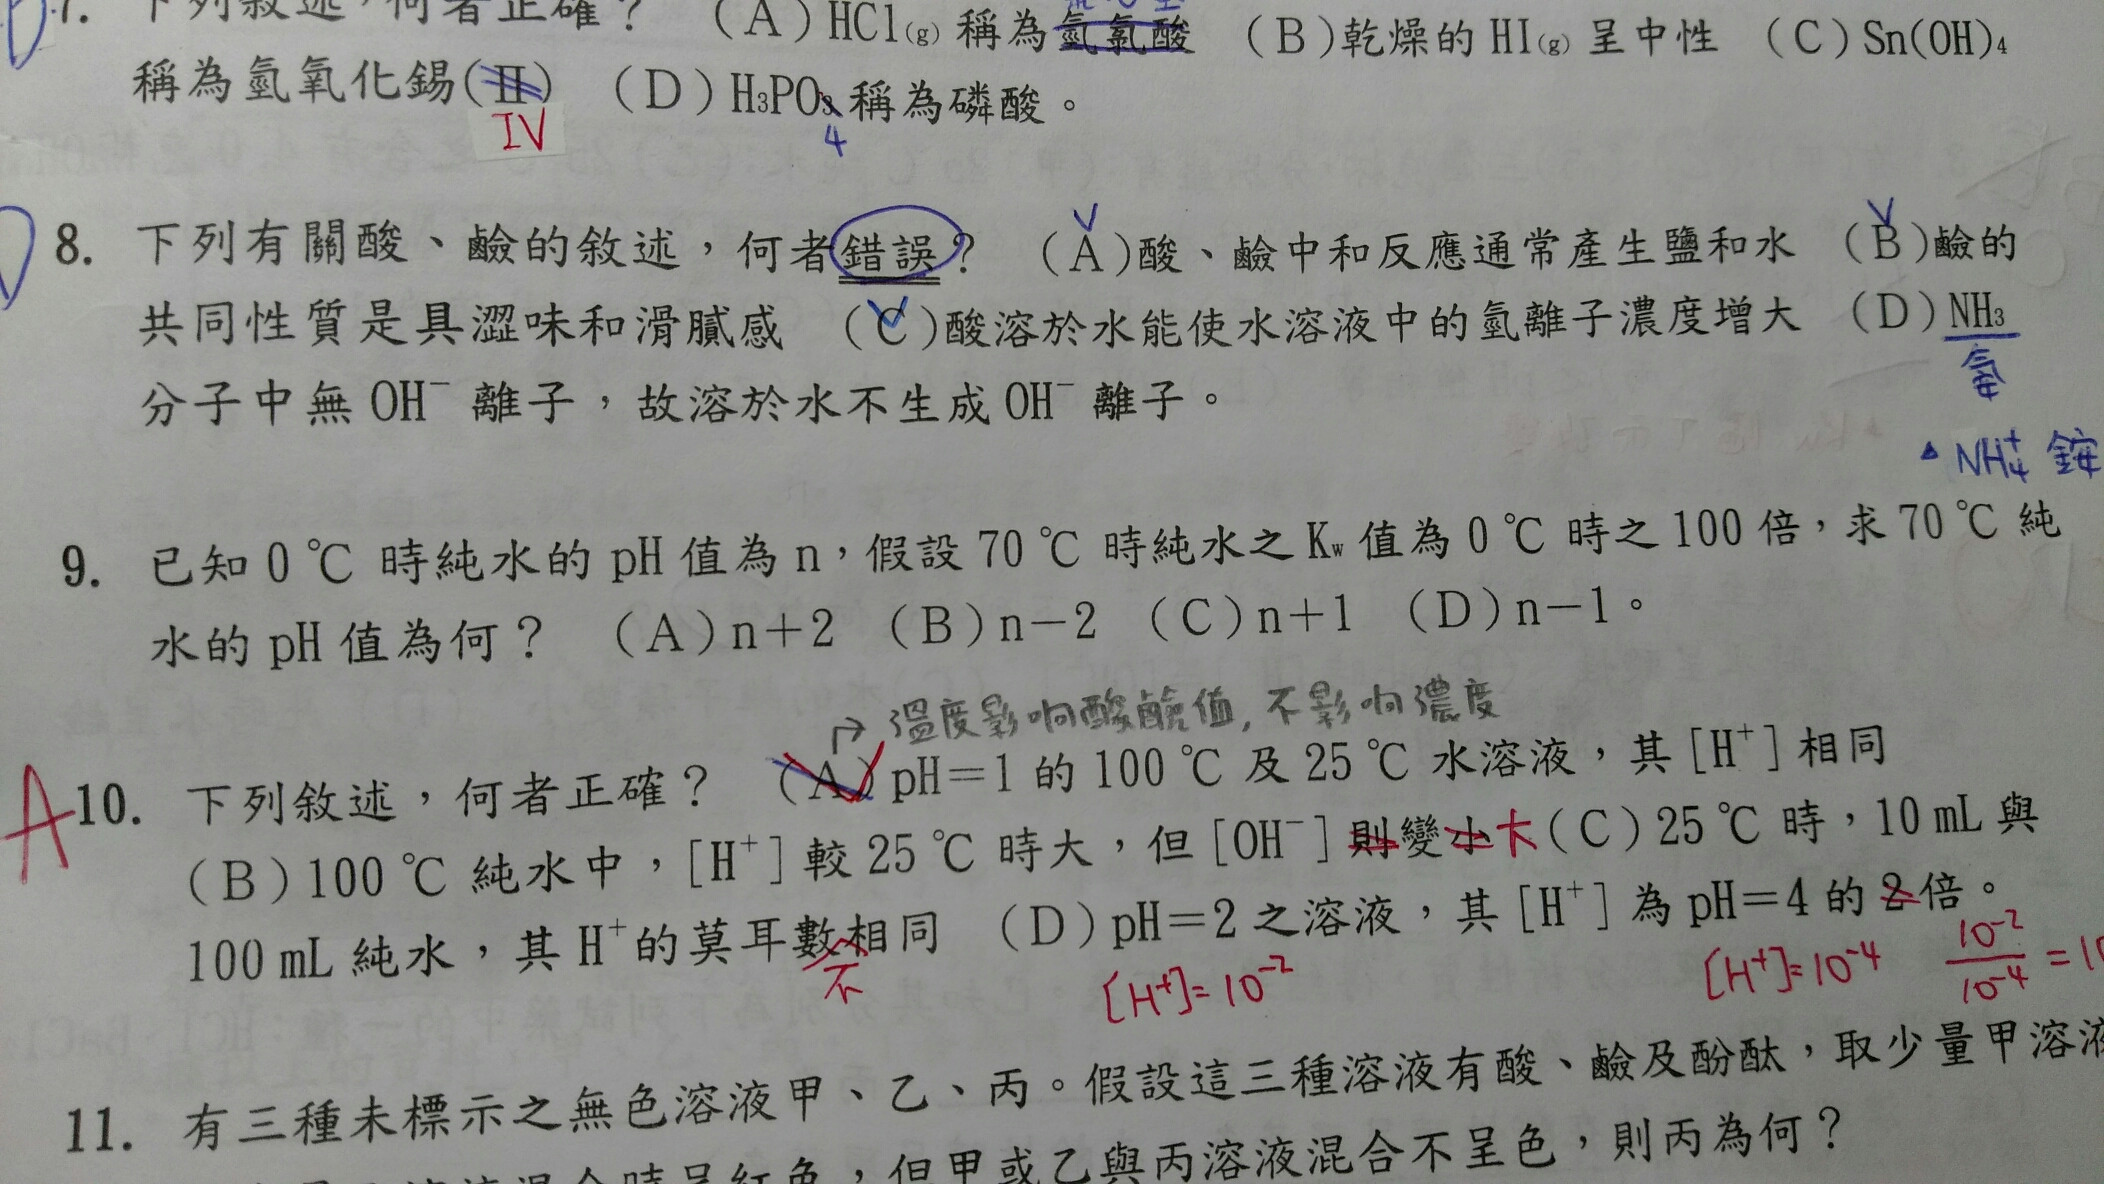 7. 下列敘述，何者正確？ (A)HCl(g) 稱為氫氯酸 (B)乾燥的 HI(g) 呈中性 (C)Sn(OH)4
稱為氫氧化錫(II) (D)H3PO3 稱為磷酸。
IV
4
8. 下列有關酸、鹼的敘述，何者錯誤？ (A)酸、鹼中和反應通常產生鹽和水 (B)鹼的
共同性質是具澀味和滑膩感 (C)酸溶於水能使水溶液中的氫離子濃度增大 (D)NH3
氨
分子中無 OH⁻ 離子，故溶於水不生成 OH⁻ 離子。
NH4⁺ 銨
9. 已知 0 ℃ 時純水的 pH 值為 n，假設 70 ℃ 時純水之 Kw 值為 0 ℃ 時之 100 倍，求 70 ℃ 純
水的 pH 值為何？ (A)n＋2 (B)n－2 (C)n＋1 (D)n－1。
→ 溫度影响酸鹼值, 不影响濃度
A 10. 下列敘述，何者正確？ (A)pH＝1 的 100 ℃ 及 25 ℃ 水溶液，其［H⁺］相同
(B)100 ℃ 純水中，［H⁺］較 25 ℃ 時大，但［OH⁻］則變小 大 (C)25 ℃ 時，10 mL 與
100 mL 純水，其 H⁺ 的莫耳數相同 (D)pH＝2 之溶液，其［H⁺］為 pH＝4 的 2 倍。
不
[H⁺]=10⁻² [H⁺]=10⁻⁴ 10⁻²/10⁻⁴ = 10
11. 有三種未標示之無色溶液甲、乙、丙。假設這三種溶液有酸、鹼及酚酞，取少量甲溶液
，但甲或乙與丙溶液混合不呈色，則丙為何？